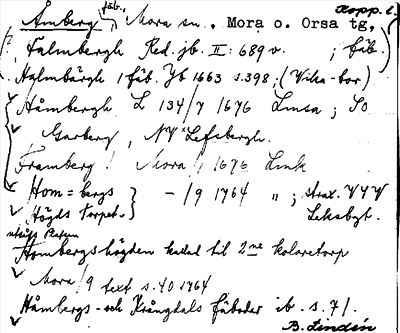 Kopp. l.
Åmberg, fäb., Mora sn., Mora o. Orsa tg,
Falmbergh Red. jb. II: 689 v. ; fäb.
Halmbärgh, fäb. Jb 1663 s. 398; (Vika-bor)
Håmbergh L 134/7 1676 Linsa; So
Garberg, NV Lefsbergh.
Framberg! Mora/, 1676 Link
Hom=bergs — /9 1764 " ; strax V V V
Högds Torpet. Leksbyt.
Hombergshögden kallad till 2ne kolaretorp
Mora/9 text s. 40 1764
Håmbergs- och Krångdals fäboder ib. s. 71.
B. Lindén